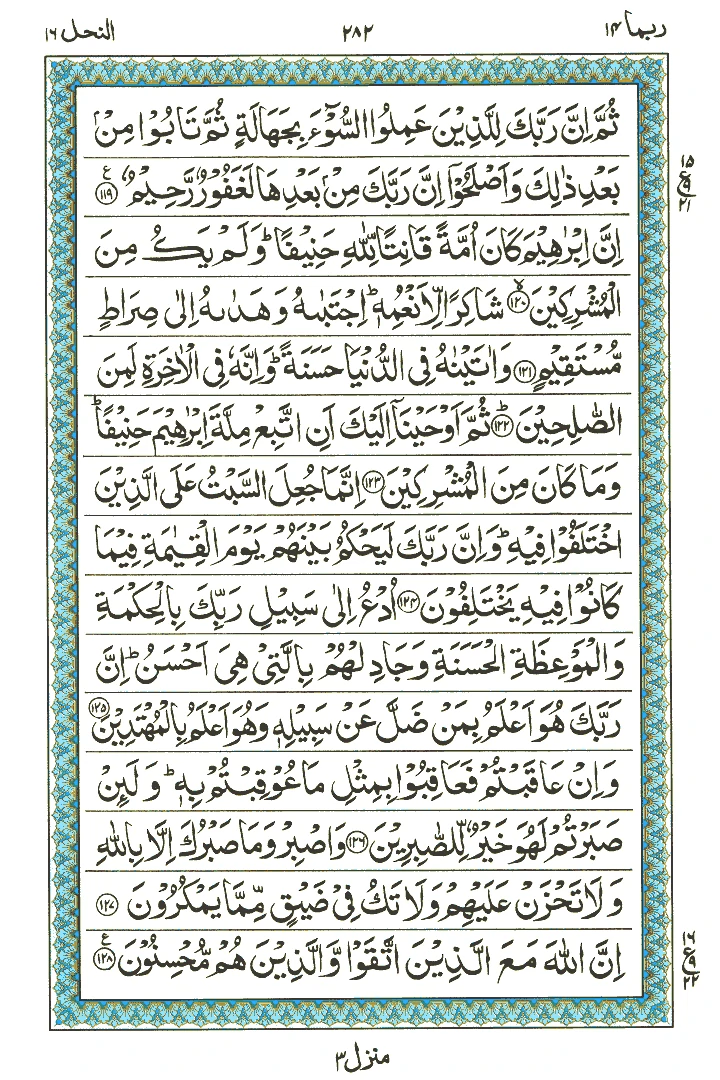 ربما ١٤ ٢٨٢ النحل ١٦
ثُمَّ اِنَّ رَبَّكَ لِلَّذِيْنَ عَمِلُوا السُّوْٓءَ بِجَهَالَةٍ ثُمَّ تَابُوْا مِنْۢ
بَعْدِ ذٰلِكَ وَاَصْلَحُوْۤا اِنَّ رَبَّكَ مِنْۢ بَعْدِهَا لَغَفُوْرٌ رَّحِيْمٌ ࣖ ﴿١١٩﴾
اِنَّ اِبْرٰهِيْمَ كَانَ اُمَّةً قَانِتًا لِّلّٰهِ حَنِيْفًا ؕ وَلَمْ يَكُ مِنَ
الْمُشْرِكِيْنَ ۙ ﴿١٢٠﴾ شَاكِرًا لِّاَنْعُمِهٖ ؕ اِجْتَبٰىهُ وَهَدٰىهُ اِلٰى صِرَاطٍ
مُّسْتَقِيْمٍ ﴿١٢١﴾ وَاٰتَيْنٰهُ فِى الدُّنْيَا حَسَنَةً ؕ وَاِنَّهٗ فِى الْاٰخِرَةِ لَمِنَ
الصّٰلِحِيْنَ ؕ ﴿١٢٢﴾ ثُمَّ اَوْحَيْنَاۤ اِلَيْكَ اَنِ اتَّبِعْ مِلَّةَ اِبْرٰهِيْمَ حَنِيْفًا ؕ
وَمَا كَانَ مِنَ الْمُشْرِكِيْنَ ﴿١٢٣﴾ اِنَّمَا جُعِلَ السَّبْتُ عَلَى الَّذِيْنَ
اخْتَلَفُوْا فِيْهِ ؕ وَاِنَّ رَبَّكَ لَيَحْكُمُ بَيْنَهُمْ يَوْمَ الْقِيٰمَةِ فِيْمَا
كَانُوْا فِيْهِ يَخْتَلِفُوْنَ ﴿١٢٤﴾ اُدْعُ اِلٰى سَبِيْلِ رَبِّكَ بِالْحِكْمَةِ
وَالْمَوْعِظَةِ الْحَسَنَةِ وَجَادِلْهُمْ بِالَّتِىْ هِىَ اَحْسَنُ ؕ اِنَّ
رَبَّكَ هُوَ اَعْلَمُ بِمَنْ ضَلَّ عَنْ سَبِيْلِهٖ وَهُوَ اَعْلَمُ بِالْمُهْتَدِيْنَ ﴿١٢٥﴾
وَاِنْ عَاقَبْتُمْ فَعَاقِبُوْا بِمِثْلِ مَا عُوْقِبْتُمْ بِهٖ ؕ وَلَئِنْ
صَبَرْتُمْ لَهُوَ خَيْرٌ لِّلصّٰبِرِيْنَ ﴿١٢٦﴾ وَاصْبِرْ وَمَا صَبْرُكَ اِلَّا بِاللّٰهِ
وَلَا تَحْزَنْ عَلَيْهِمْ وَلَا تَكُ فِىْ ضَيْقٍ مِّمَّا يَمْكُرُوْنَ ﴿١٢٧﴾
اِنَّ اللّٰهَ مَعَ الَّذِيْنَ اتَّقَوْا وَّالَّذِيْنَ هُمْ مُّحْسِنُوْنَ ࣖ ﴿١٢٨﴾
١٥
ع ٩
٢١
١٦
ع ٩
٢٢
منزل ٣